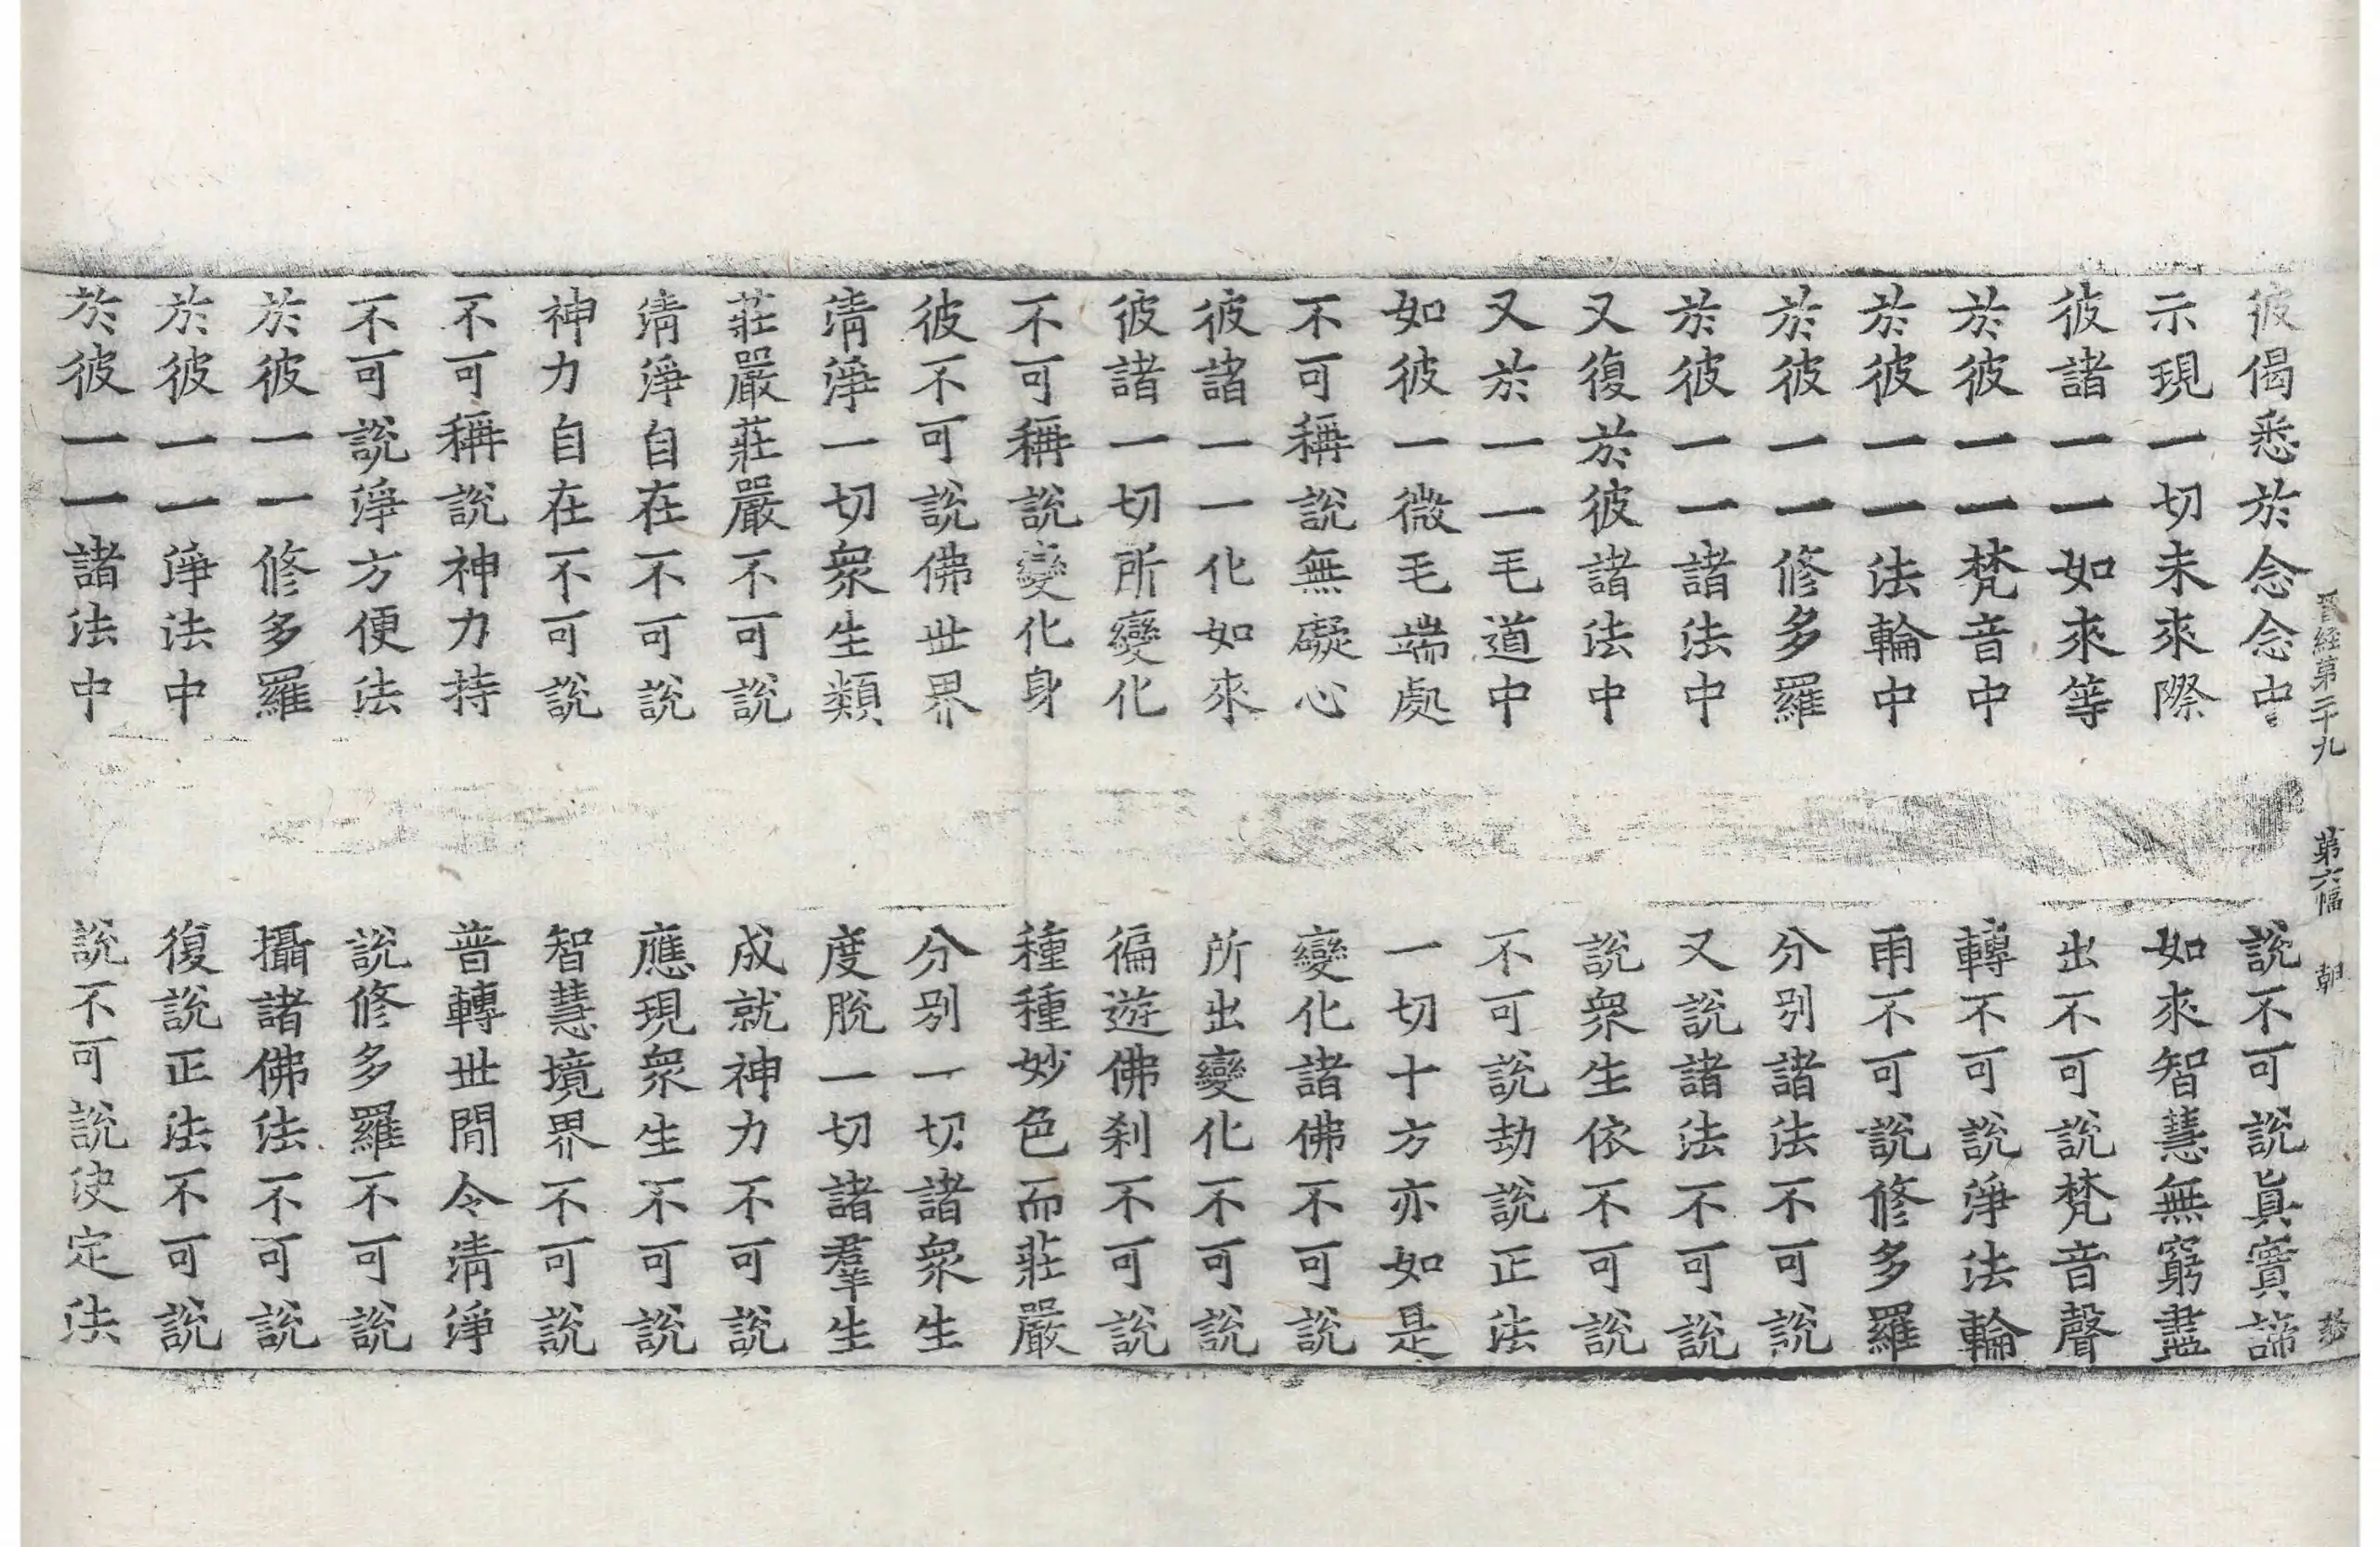 晉經第二十九 第六幅 朝
彼偈悉於念念中 說不可說眞實諦
示現一切未來際 如來智慧無窮盡
彼諸一一如來等 出不可說梵音聲
於彼一一梵音中 轉不可說淨法輪
於彼一一法輪中 雨不可說修多羅
於彼一一修多羅 分別諸法不可說
於彼一一諸法中 又說諸法不可說
又復於彼諸法中 說衆生依不可說
又於一一毛道中 不可說劫說正法
如彼一微毛端處 一切十方亦如是
不可稱說無礙心 變化諸佛不可說
彼諸一一化如來 所出變化不可說
彼諸一切所變化 徧遊佛刹不可說
不可稱說變化身 種種妙色而莊嚴
彼不可說佛世界 分別一切諸衆生
清淨一切衆生類 度脫一切諸羣生
莊嚴莊嚴不可說 成就神力不可說
清淨自在不可說 應現衆生不可說
神力自在不可說 智慧境界不可說
不可稱說神力持 普轉世間令清淨
不可說淨方便法 說修多羅不可說
於彼一一修多羅 攝諸佛法不可說
於彼一一淨法中 復說正法不可說
於彼一一諸法中 說不可說決定法